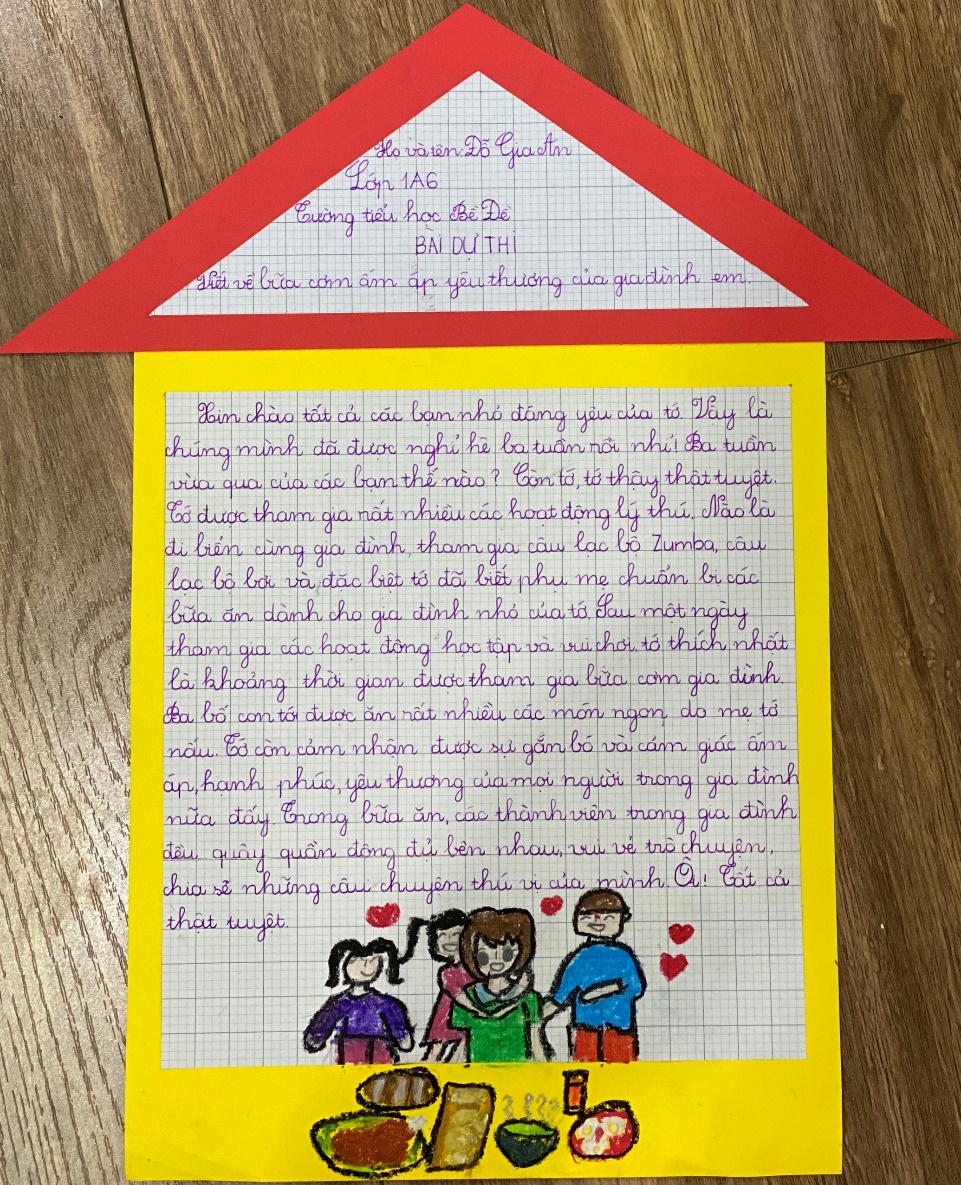 Họ và tên: Đỗ Gia An
Lớp 1A6
Trường tiểu học Bồ Đề
BÀI DỰ THI
Viết về bữa cơm ấm áp yêu thương của gia đình em.
Xin chào tất cả các bạn nhỏ đáng yêu của tớ. Vậy là
chúng mình đã được nghỉ hè ba tuần rồi nhỉ! Ba tuần
vừa qua của các bạn thế nào? Còn tớ, tớ thấy thật tuyệt.
Tớ được tham gia rất nhiều các hoạt động lý thú. Nào là
đi biển cùng gia đình, tham gia câu lạc bộ Zumba, câu
lạc bộ bơi và đặc biệt tớ đã biết phụ mẹ chuẩn bị các
bữa ăn dành cho gia đình nhỏ của tớ. Sau một ngày
tham gia các hoạt động học tập và vui chơi, tớ thích nhất
là khoảng thời gian được tham gia bữa cơm gia đình.
Ba bố con tớ được ăn rất nhiều các món ngon do mẹ tớ
nấu. Tớ còn cảm nhận được sự gắn bó và cảm giác ấm
áp, hạnh phúc, yêu thương của mọi người trong gia đình
nữa đấy. Trong bữa ăn, các thành viên trong gia đình
đều quây quần đông đủ bên nhau, vui vẻ trò chuyện,
chia sẻ những câu chuyện thú vị của mình. Ồ! Tất cả
thật tuyệt.